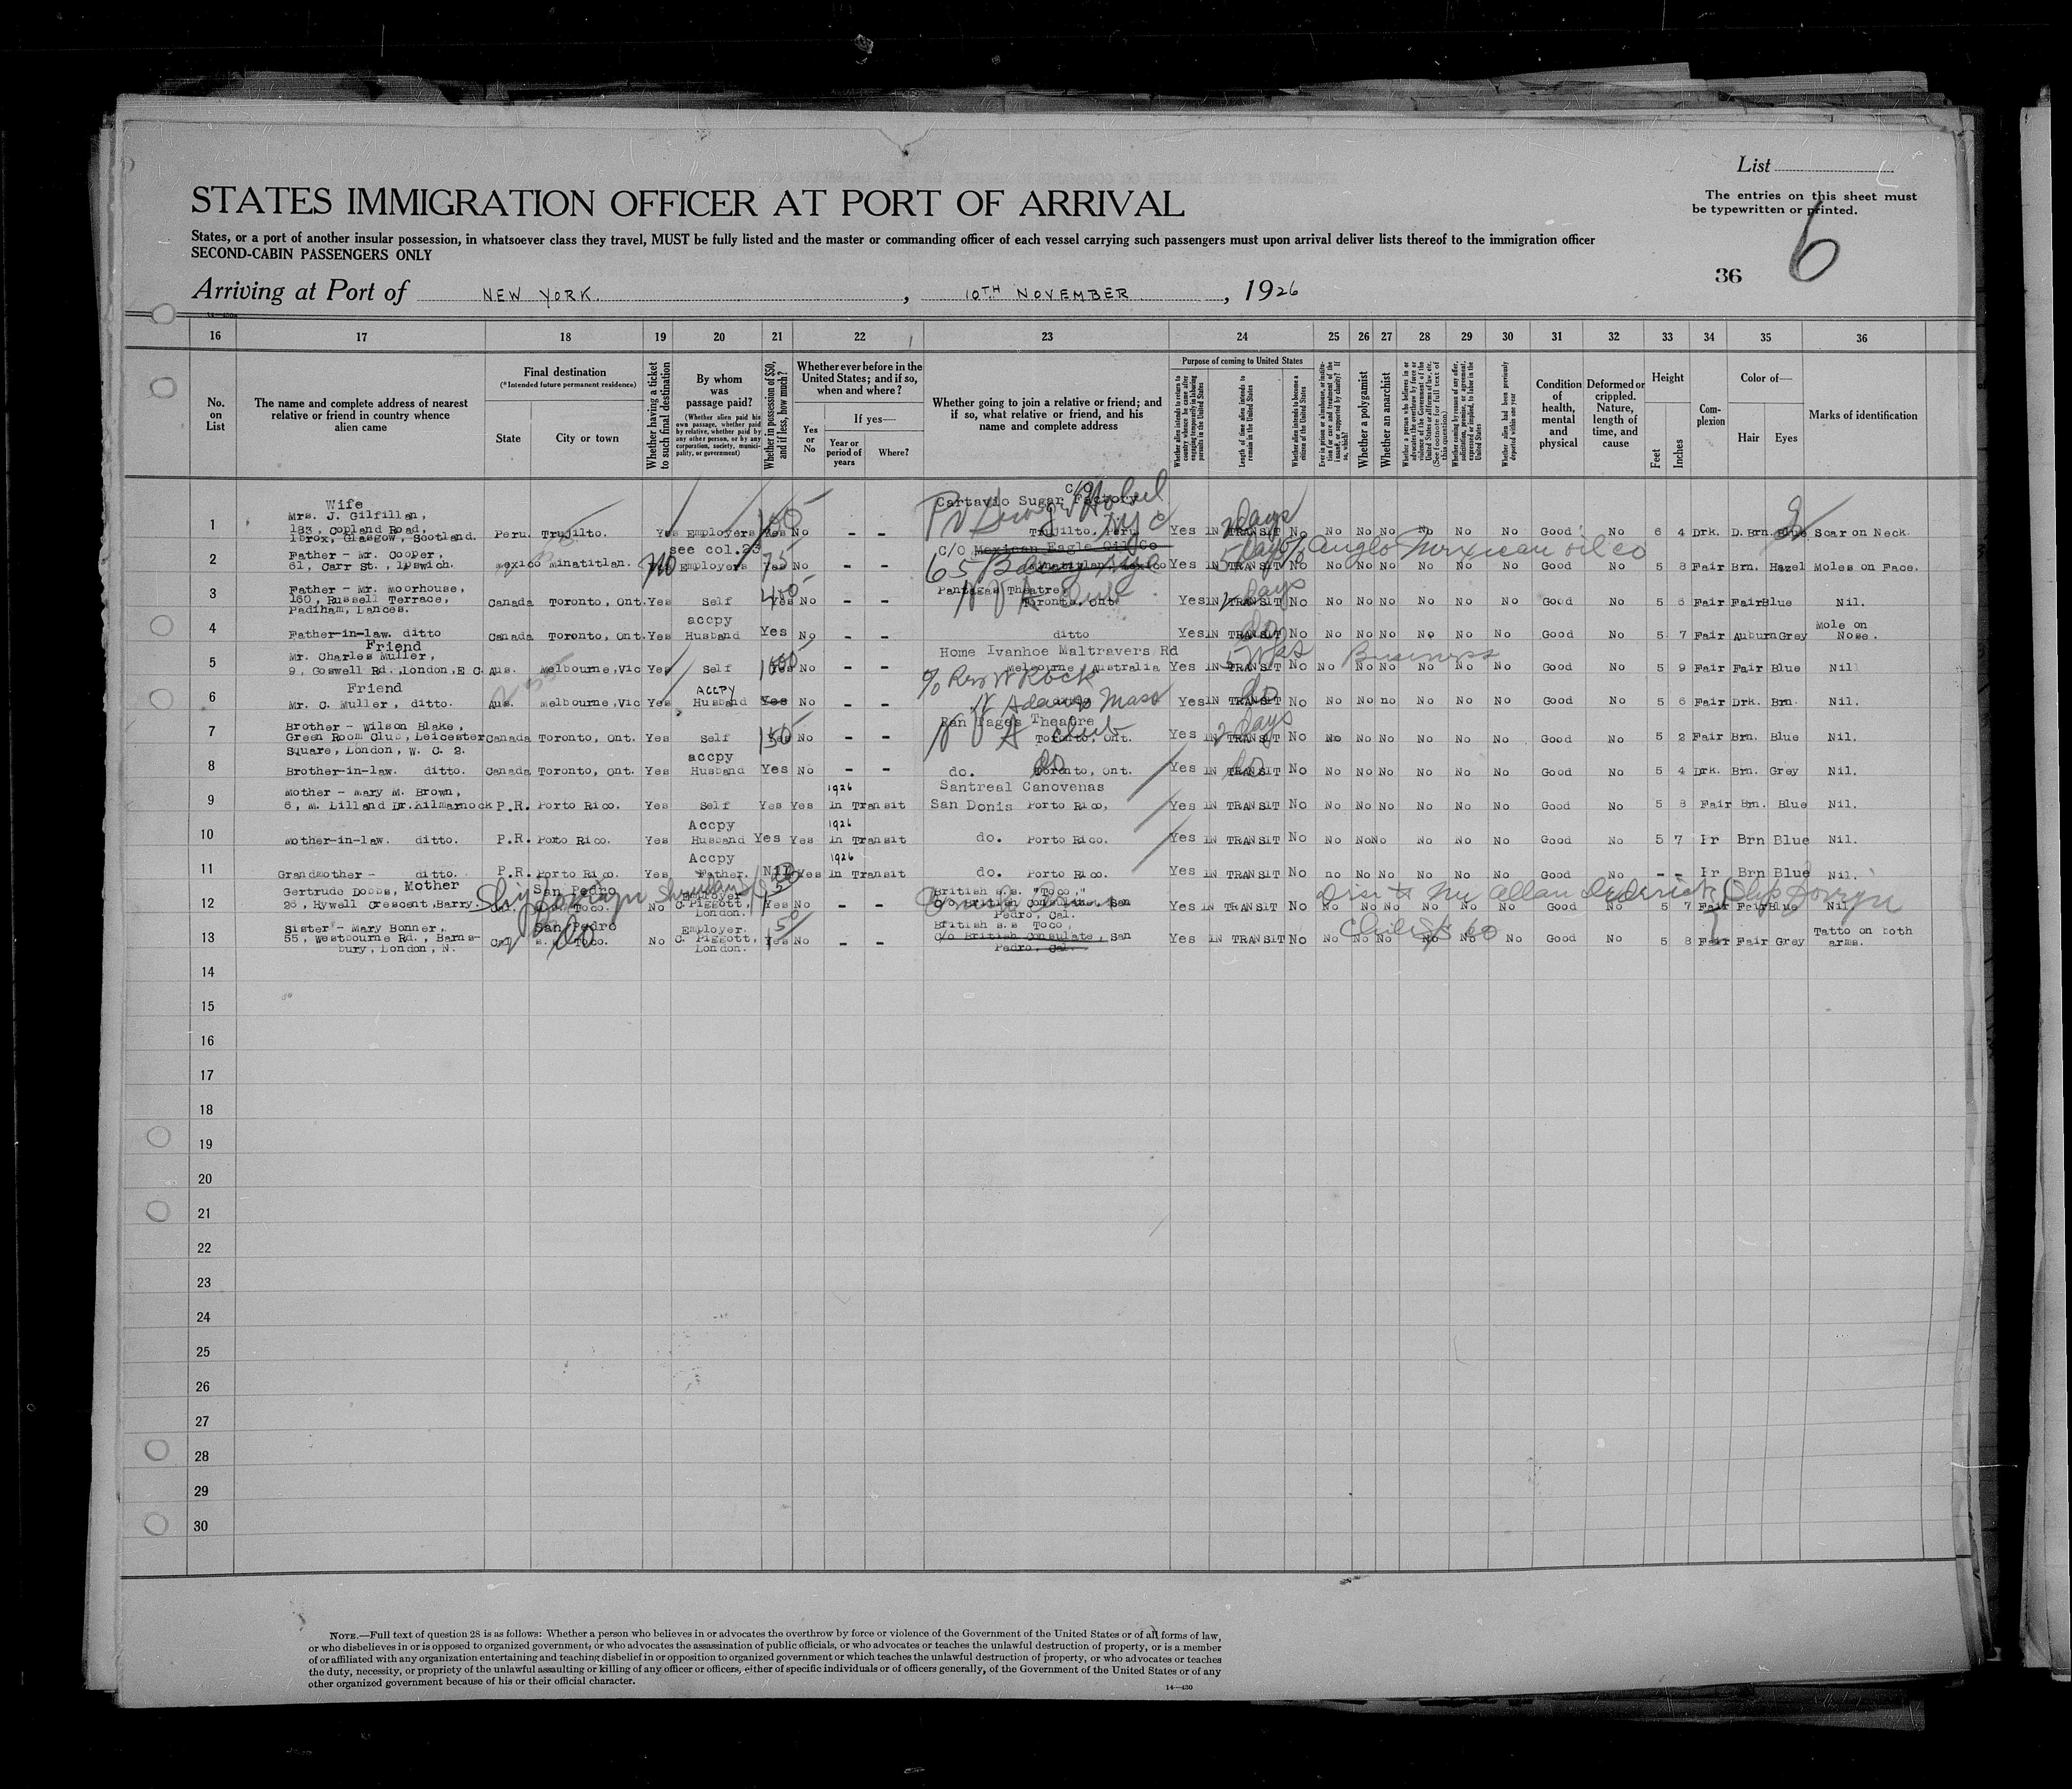 List
The entries on this sheet must
be typewritten or printed.
STATES IMMIGRATION OFFICER AT PORT OF ARRIVAL
States, or a port of another insular possession, in whatsoever class they travel, MUST be fully listed and the master or commanding officer of each vessel carrying such passengers must upon arrival deliver lists thereof to the immigration officer
SECOND-CABIN PASSENGERS ONLY
36 6
Arriving at Port of NEW YORK. , 10TH NOVEMBER , 1926
16 17 18 19 20 21 22 23 24 25 26 27 28 29 30 31 32 33 34 35 36
No. on List
The name and complete address of nearest relative or friend in country whence alien came
Final destination
(*Intended future permanent residence)
State
City or town
Whether having a ticket to such final destination
By whom was passage paid?
(Whether alien paid his own passage, whether paid by relative, whether paid by any other person, or by any corporation, society, municipality, or government)
Whether in possession of $50, and if less, how much?
Whether ever before in the United States; and if so, when and where?
Yes or No
If yes—
Year or period of years
Where?
Whether going to join a relative or friend; and if so, what relative or friend, and his name and complete address
Purpose of coming to United States
Whether alien intends to return to country whence he came after engaging temporarily in laboring pursuits in the United States
Length of time alien intends to remain in the United States
Whether alien intends to become a citizen of the United States
Ever in prison or almshouse, or institution for care and treatment of the insane, or supported by charity? If so, which?
Whether a polygamist
Whether an anarchist
Whether a person who believes in or advocates the overthrow by force or violence of the Government of the United States or all forms of law, etc. (See footnote for full text of this question)
Whether coming by reason of any offer, solicitation, promise, or agreement, expressed or implied, to labor in the United States
Whether alien had been previously deported within one year
Condition of health, mental and physical
Deformed or crippled. Nature, length of time, and cause
Height
Feet
Inches
Complexion
Color of—
Hair
Eyes
Marks of identification
Wife
Mrs. J. Gilfillan,
183, Copland Road,
1 Ibrox, Glasgow, Scotland. Peru. Trujilto. Yes Employers Yes No - - Cartavio Sugar Factory Trujilto, Peru Yes IN TRANSIT No No No No No No No Good No 6 4 Drk. D.Brn. Blue Scar on Neck.
2 days
see col.23
Father - Mr. Cooper,
2 61, Carr St., Ipswich. Mexico Minatitlan. No Employers Yes 75 No - - C/O Mexican Eagle Oil Co Minatitlan, Mexico Yes IN TRANSIT No No No No No No No Good No 5 8 Fair Brn. Hazel Moles on Face.
5 days c/o Anglo Mexican oil co
Father - Mr. Moorhouse,
3 160, Russell Terrace, Canada Toronto, Ont. Yes Self 400 Yes No - - Pantages Theatre Toronto, Ont. Yes IN TRANSIT No No No No No No No Good No 5 6 Fair Fair Blue Nil.
Padiham, Lancs.
accpy
4 Father-in-law. ditto Canada Toronto, Ont. Yes Husband Yes No - - ditto Yes IN TRANSIT No No No No No No No Good No 5 7 Fair Auburn Grey Mole on Nose.
Friend
Mr. Charles Muller,
5 9, Goswell Rd., London, E C. Aus. Melbourne, Vic Yes Self Yes No - - Home Ivanhoe Maltravers Rd Melbourne Australia Yes IN TRANSIT No No No No No No No Good No 5 9 Fair Fair Blue Nil
Business
Friend
6 Mr. C. Muller, ditto. Aus. Melbourne, Vic Yes ACCPY Husband Yes No - - c/o Rev W Rock N Adams Mass Yes IN TRANSIT No No No no No No No Good No 5 6 Fair Drk. Brn. Nil.
Brother - Wilson Blake,
7 Green Room Club, Leicester Canada Toronto, Ont. Yes Self 150 Yes No - - Pan Tages Theatre Toronto, Ont. Yes IN TRANSIT No No No No No No No Good No 5 2 Fair Brn. Blue Nil.
N V A club 2 days
Square, London, W. C. 2.
accpy
8 Brother-in-law. ditto. Canada Toronto, Ont. Yes Husband Yes No - - do. Toronto, Ont. Yes IN TRANSIT No No No No No No No Good No 5 4 Drk. Brn. Grey Nil.
Mother - Mary M. Brown, 1926 Santreal Canovenas
9 6, M. Lilland Dr. Kilmarnock P.R. Porto Rico. Yes Self Yes Yes In Transit San Donis Porto Rico, Yes IN TRANSIT No No No No No No No Good No 5 8 Fair Brn. Blue Nil.
Accpy 1926
10 Mother-in-law. ditto. P.R. Porto Rico. Yes Husband Yes Yes In Transit do. Porto Rico. Yes IN TRANSIT No No No No No No No Good No 5 7 Fr Brn Blue Nil.
Accpy 1926
11 Grandmother - ditto. P.R. Porto Rico. Yes Father. Nil Yes In Transit do. Porto Rico. Yes IN TRANSIT No no No No No No No Good No - - Fr Brn Blue Nil.
Gertrude Dobbs, Mother San Pedro Employer British s.s. "Toco,"
12 26, Hywell Crescent, Barry. Cal. s.s. Toco. No C. Piggott, London. Yes No - - c/o British Consulate, San Pedro, Cal. Yes IN TRANSIT No No No No No No No Good No 5 7 Fair Fair Blue Nil
Sister - Mary Bonner, San Pedro Employer. British s.s Toco,
13 55, Westbourne Rd., Barns- Cal s.s. Toco. No C. Piggott, Yes No - - c/o British Consulate, San Yes IN TRANSIT No No No No No No No Good No 5 8 Fair Fair Grey Tatto on both
bury, London, N. London. Pedro, Cal. arms.
14
15
16
17
18
19
20
21
22
23
24
25
26
27
28
29
30
NOTE.—Full text of question 28 is as follows: Whether a person who believes in or advocates the overthrow by force or violence of the Government of the United States or of all forms of law,
or who disbelieves in or is opposed to organized government, or who advocates the assassination of public officials, or who advocates or teaches the unlawful destruction of property, or is a member
of or affiliated with any organization entertaining and teaching disbelief in or opposition to organized government or which teaches the unlawful destruction of property, or who advocates or teaches
the duty, necessity, or propriety of the unlawful assaulting or killing of any officer or officers, either of specific individuals or of officers generally, of the Government of the United States or of any
other organized government because of his or their official character.
14—430